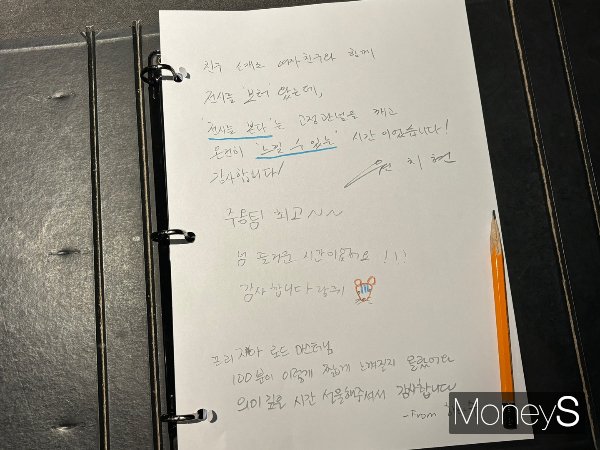 친구 소개로 여자친구와 함께
전시를 '보러' 왔는데,
'전시는 본다'는 고정관념을 깨고
온전히 '느낄 수 있는' 시간이었습니다!
감사합니다!
최고~~
넘 즐거운 시간이었어요 !!!
감사합니다
우리 로드 마스터님
100분이 이렇게 짧게 느껴질지 몰랐어요
의미 깊은 시간 선물해주셔서 감사합니다
-From
MoneyS